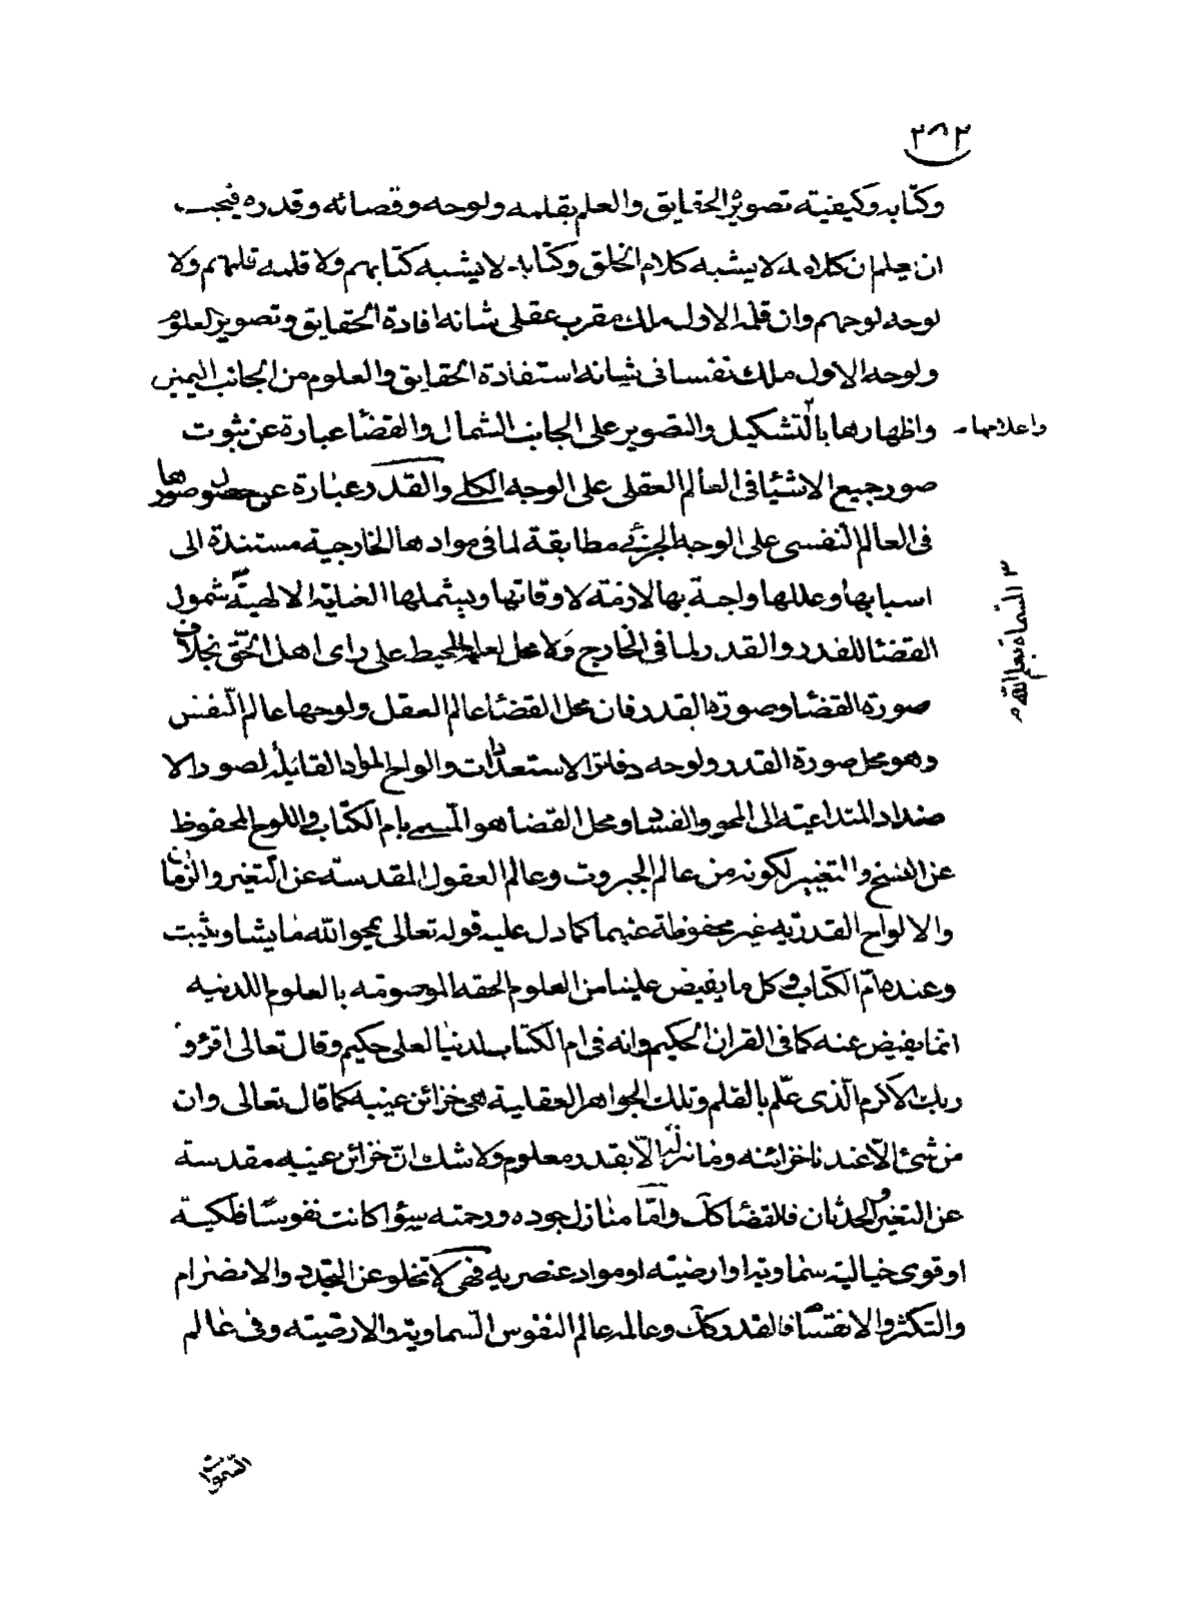 ٢٨٢
وكتابه وكيفية تصوير الحقايق والعلم بقلمه ولوحه وقضائه وقدره فيجب
ان يعلم ان كلامه لا يشبه كلام الخلق وكتابه لا يشبه كتابهم ولا قلمه قلمهم ولا
لوحه لوحهم وان قلمه الاول ملك مقرب عقلى شانه افادة الحقايق وتصوير العلوم
ولوحه الاول ملك نفسانى شانه استفادة الحقايق والعلوم من الجانب اليمين
واظهارها بالتشكيل والتصوير على الجانب الشمال والقضا عبارة عن ثبوت
واعلامها
صور جميع الاشيا فى العالم العقلى على الوجه الكلى والقدر عبارة عن حصول صورها
فى العالم النفسى على الوجه الجزئى مطابقة لما فى موادها الخارجية مستندة الى
اسبابها وعللها واجبة بها لازمة لاوقاتها ويشملها العناية الالهية شمول
المسماة بعلم الله
القضا للقدر والقدر لما فى الخارج ولا محل لعلمه المحيط على راى اهل الحق بخلاف
صورة القضا وصورة القدر فان محل القضا عالم العقل ولوحها عالم النفس
وهو محل صورة القدر ولوحه دفاتر الاستعدادات والواح المواد القابلة لصور الا
ضداد المتداعية الى المحو والفساد ومحل القضا هو المسمى بام الكتاب واللوح المحفوظ
عن النسخ والتغيير لكونه من عالم الجبروت وعالم العقول المقدسة عن التغير والزمان
والالواح القدرية غير محفوظة عنهما كما دل عليه قوله تعالى يمحو الله ما يشا ويثبت
وعنده ام الكتاب وكل ما يفيض علينا من العلوم الحقه الموصوفه بالعلوم اللدنيه
انما يفيض عنه كما فى القران الحكيم وانه فى ام الكتاب لدينا لعلى حكيم وقال تعالى اقرؤ
ربك الاكرم الذى علم بالقلم وتلك الجواهر العقلية هى خزائن غيبه كما قال تعالى وان
من شئ الا عندنا خزائنه وما ننزله الا بقدر معلوم ولا شك ان خزائن غيبه مقدسة
عن التغير والحدثان فالقضا كك واما منازل جوده ورحمته سؤا كانت نفوسا فلكية
او قوى خيالية سماوية او ارضيته او مواد عنصريه فهى لا تخلو عن التجدد والانصرام
والتكثر والانقسام فالقدر كك وعالمه عالم النفوس السماوية والارضيته وفى عالم
السموات